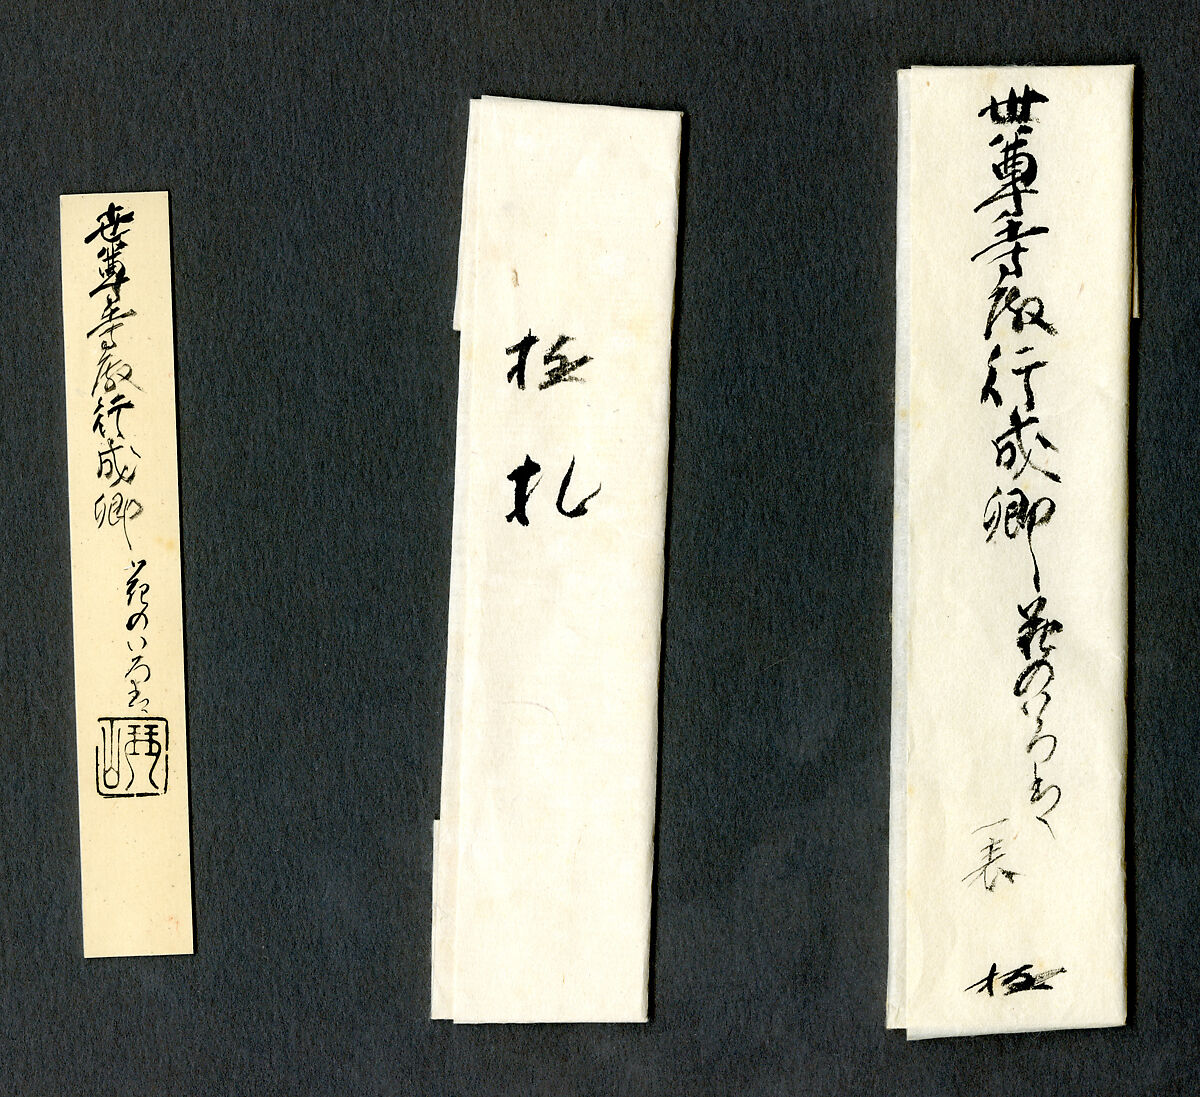 世尊寺殿行成卿
花のいろは
琴山
極札
世尊寺殿行成卿
花のいろは
一表
極